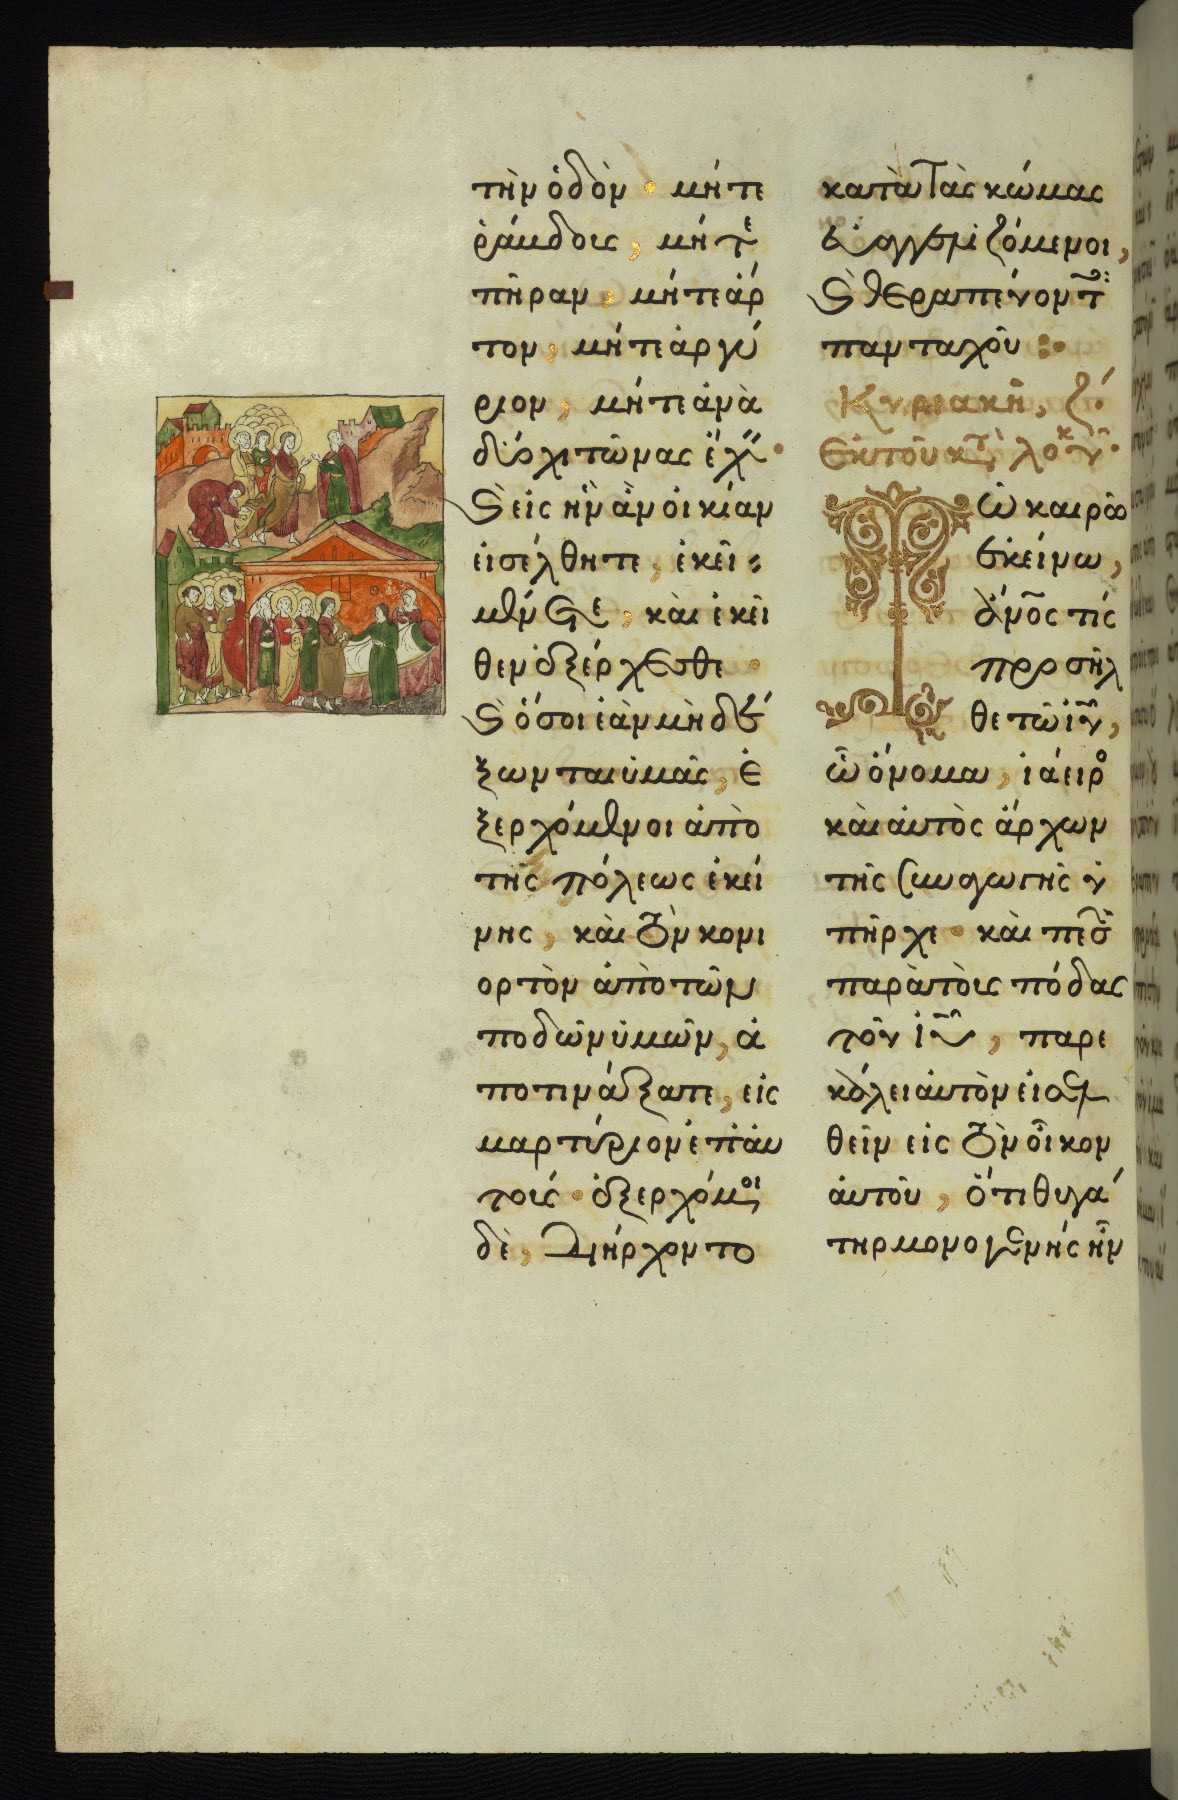 τὴν ὁδὸν · μήτε
ῥάβδοις, μήτε
πήραν, μήτε ἄρ
τον, μήτε ἀργύ
ριον, μήτε ἀνὰ
δύο χιτῶνας ἔχειν·
καὶ εἰς ἣν ἂν οἰκίαν
εἰσέλθητε, ἐκεῖ
μένετε, καὶ ἐκεῖ
θεν ἐξέρχεσθε ·
καὶ ὅσοι ἐὰν μὴ δέ
ξωνται ὑμᾶς, ἐ
ξερχόμενοι ἀπὸ
τῆς πόλεως ἐκεί
νης, καὶ τὸν κονι
ορτὸν ἀπὸ τῶν
ποδῶν ὑμῶν, ἀ
ποτινάξατε, εἰς
μαρτύριον ἐπ' αὐ
τούς · ἐξερχόμενοι
δὲ, διήρχοντο
κατὰ τὰς κώμας
εὐαγγελιζόμενοι,
καὶ θεραπεύοντες
πανταχοῦ :·
Κυριακῆ, ζ΄
Ἐκ τοῦ κατὰ λουκᾶν·
Τῶ καιρῶ
ἐκείνω,
ἄνος τίς
προσῆλ
θε τῶ ἰυ,
ὧ ὄνομα, ἰάειρος
καὶ αὐτὸς ἄρχων
τῆς συναγωγῆς ὑ
πῆρχε · καὶ πεσὼν
παρὰ τοὺς πόδας
τοῦ ἰυ, παρε
κάλει αὐτὸν εἰσελ
θεῖν εἰς τὸν οἶκον
αὐτοῦ, ὅτι θυγά
τηρ μονογενής ἦν